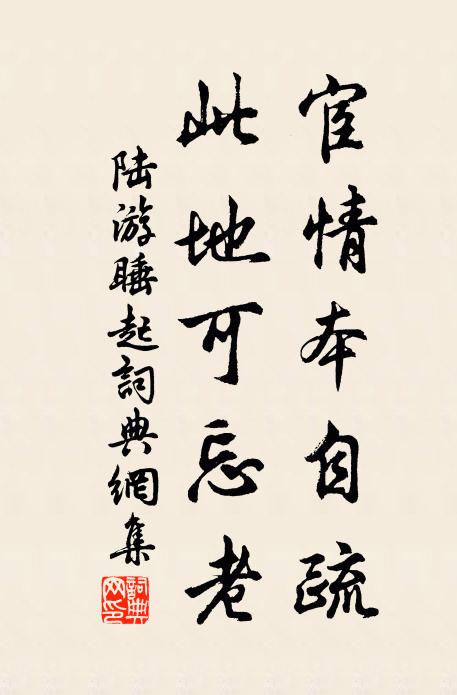 宦情本自疏
此地可忘老
陆游睡起詞典網集
詞典網印